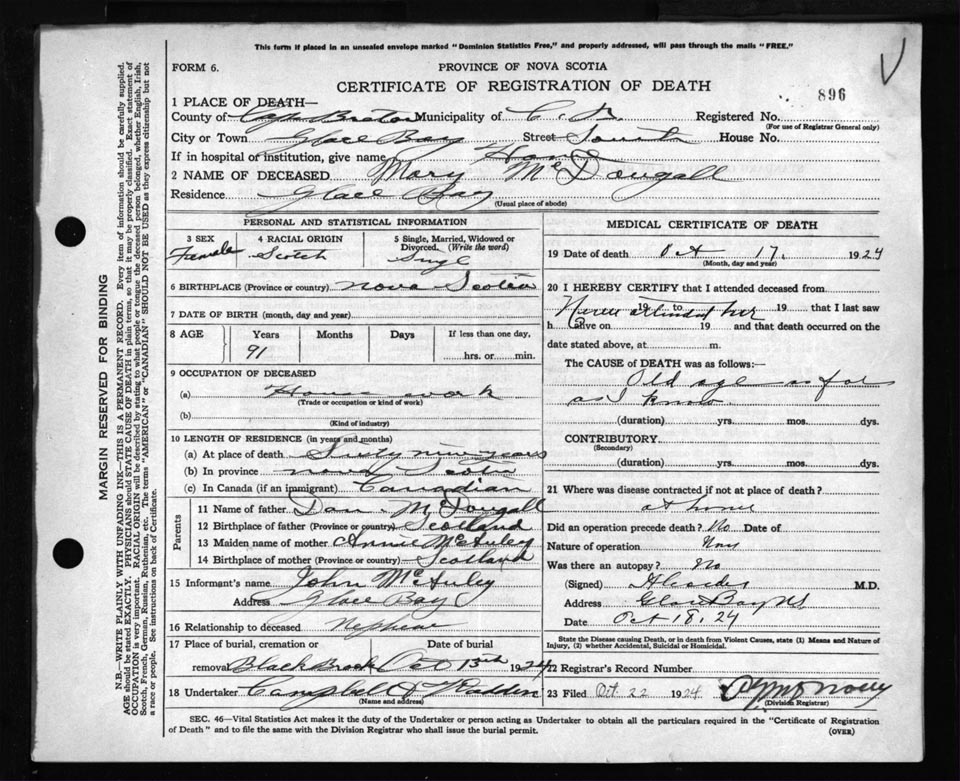 This form if placed in an unsealed envelope marked "Dominion Statistics Free," and properly addressed, will pass through the mails "FREE."
FORM 6.
PROVINCE OF NOVA SCOTIA
CERTIFICATE OF REGISTRATION OF DEATH
896
1 PLACE OF DEATH—
County of Cape Breton Municipality of C. B. Registered No.
(For use of Registrar General only)
City or Town Glace Bay Street South House No.
If in hospital or institution, give name Home
2 NAME OF DECEASED Mary McDougall
Residence Glace Bay
(Usual place of abode)
PERSONAL AND STATISTICAL INFORMATION
3 SEX 4 RACIAL ORIGIN 5 Single, Married, Widowed or Divorced. (Write the word)
Female Scotch Singl
6 BIRTHPLACE (Province or country) Nova Scotia
7 DATE OF BIRTH (month, day and year)
8 AGE Years Months Days If less than one day,
91 hrs. or min.
9 OCCUPATION OF DECEASED
(a) House work
(Trade or occupation or kind of work)
(b)
(Kind of industry)
10 LENGTH OF RESIDENCE (in years and months)
(a) At place of death Sixty nine years
(b) In province Nova Scotia
(c) In Canada (if an immigrant) Canadian
Parents
11 Name of father Dan McDougall
12 Birthplace of father (Province or country) Scotland
13 Maiden name of mother Annie McAuley
14 Birthplace of mother (Province or country) Scotland
15 Informant's name John McAuley
Address Glace Bay
16 Relationship to deceased Nephew
17 Place of burial, cremation or removal Date of burial
Black Brook Oct 13th 1924
18 Undertaker Campbell & McFadden
(Name and address)
MEDICAL CERTIFICATE OF DEATH
19 Date of death Oct 17, 1924
(Month, day and year)
20 I HEREBY CERTIFY that I attended deceased from
Never attended her 19 to 19 that I last saw
h alive on 19 and that death occurred on the
date stated above, at m.
The CAUSE of DEATH was as follows:—
Old age as far
as I know
(duration) yrs. mos. dys.
CONTRIBUTORY
(Secondary)
(duration) yrs. mos. dys.
21 Where was disease contracted if not at place of death?
at home
Did an operation precede death? No Date of
Nature of operation None
Was there an autopsy? No
(Signed) M.D.
Address Glace Bay NS
Date Oct 18, 24
State the Disease causing Death, or in death from Violent Causes, state (1) Means and Nature of Injury, (2) whether Accidental, Suicidal or Homicidal.
22 Registrar's Record Number
23 Filed Oct. 22 1924
(Division Registrar)
SEC. 46—Vital Statistics Act makes it the duty of the Undertaker or person acting as Undertaker to obtain all the particulars required in the "Certificate of Registration
of Death" and to file the same with the Division Registrar who shall issue the burial permit.
(OVER)
MARGIN RESERVED FOR BINDING
N.B.—WRITE PLAINLY WITH UNFADING INK—THIS IS A PERMANENT RECORD. Every item of information should be carefully supplied.
AGE should be stated EXACTLY. PHYSICIANS should STATE CAUSE OF DEATH in plain terms, so that it may be properly classified. Exact statement of
OCCUPATION is very important. RACIAL ORIGIN will be described by stating to what people or tongue the deceased person belonged, whether English, Irish,
Scotch, French, German, Russian, Ruthenian, etc. The terms "AMERICAN" or "CANADIAN" SHOULD NOT BE USED as they express citizenship but not
a race or people. See instructions on back of Certificate.